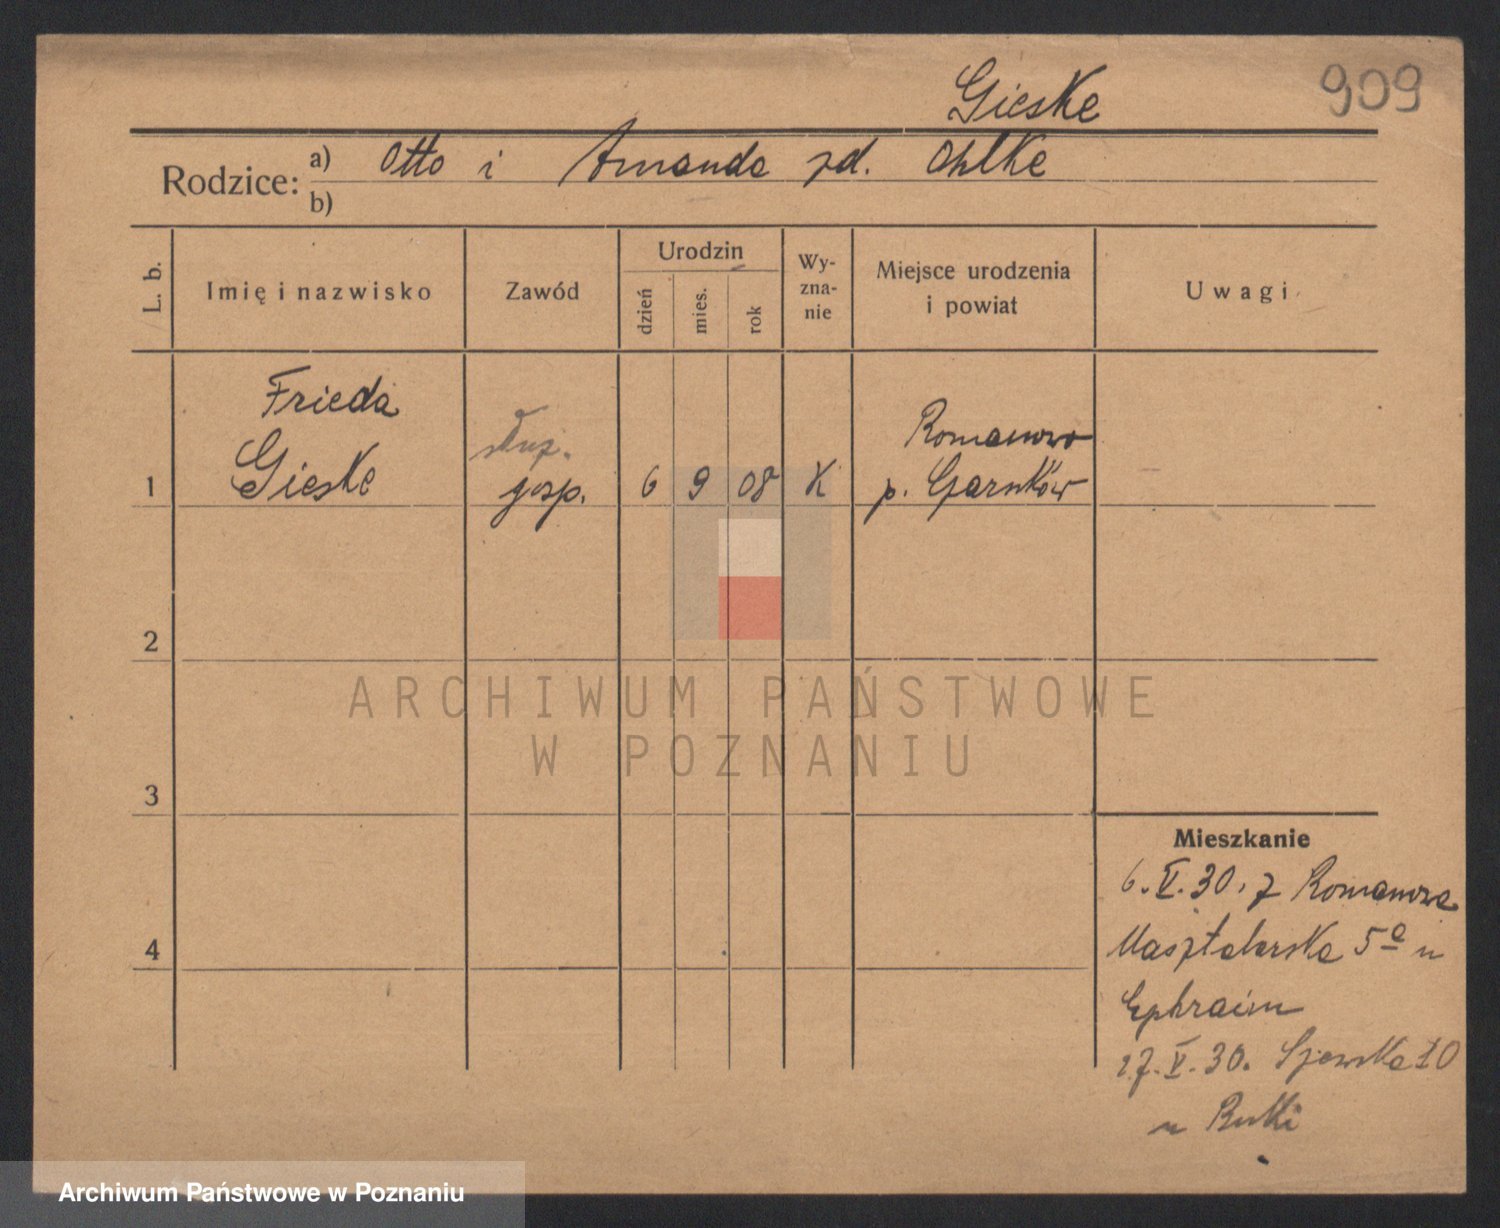 909
Gieske
Rodzice: a) Otto i Amanda zd. Ohlke
b)
L. b.
Imię i nazwisko
Zawód
Urodzin
dzień
mies.
rok
Wy-
zna-
nie
Miejsce urodzenia
i powiat
Uwagi
Frieda
Gieske
służ.
gosp.
1
6 9 08
Romanowo
p. Czarnków
2
3
4
Mieszkanie
6.V.30. z Romanowa
Masztalarska 5a u
Ephraim
17.V.30. Szewska 10
u
ARCHIWUM PAŃSTWOWE
W POZNANIU
Archiwum Państwowe w Poznaniu